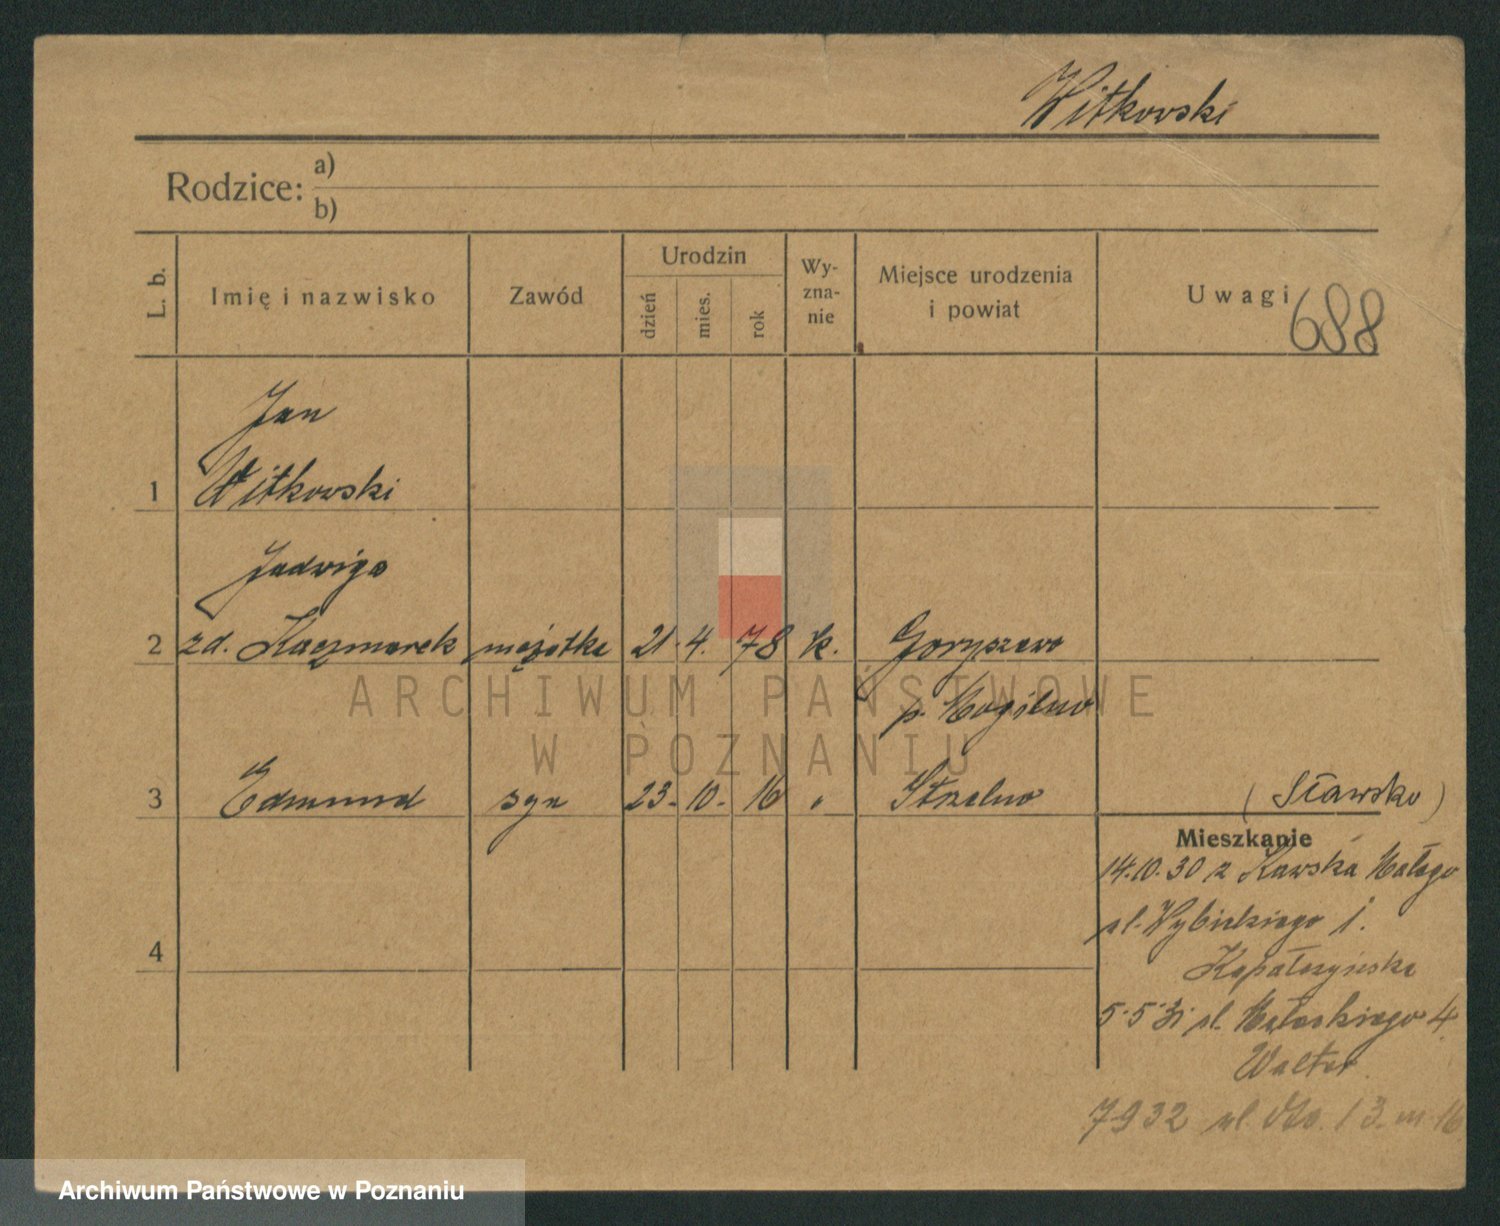 Witkowski
Rodzice:
a)
b)
L. b.
Imię i nazwisko
Zawód
Urodzin
dzień
mies.
rok
Wy-
zna-
nie
Miejsce urodzenia
i powiat
Uwagi
688
Jan
1 Witkowski
Jadwiga
2 zd. Kaczmarek mężatka 21. 4. 78 k. Goryszewo
p. Mogilno
ARCHIWUM PAŃSTWOWE
W POZNANIU
3 Edmund syn 23. 10. 16 " Strzelno
(Sławsko)
Mieszkanie
14.10.30 z Sławska Małego
ul. Wybickiego 1.
4
5.5.31 ul. 4
Walter
7932 ul. 13 m 16
Archiwum Państwowe w Poznaniu